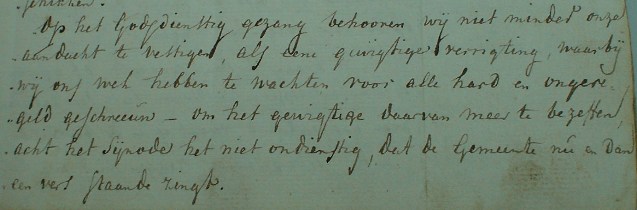 schikken.
Op het Godsdienstig gezang behooren wij niet minder onze
aandacht te vestigen, als eene gewigtige verrigting, waarbij
wij ons wel hebben te wachten voor alle hard en ongere-
geld geschreeuw – om het gewigtige daarvan meer te bezeffen,
acht het Sijnode het niet ondienstig, dat de Gemeente nu en dan
een vers staande zingt.